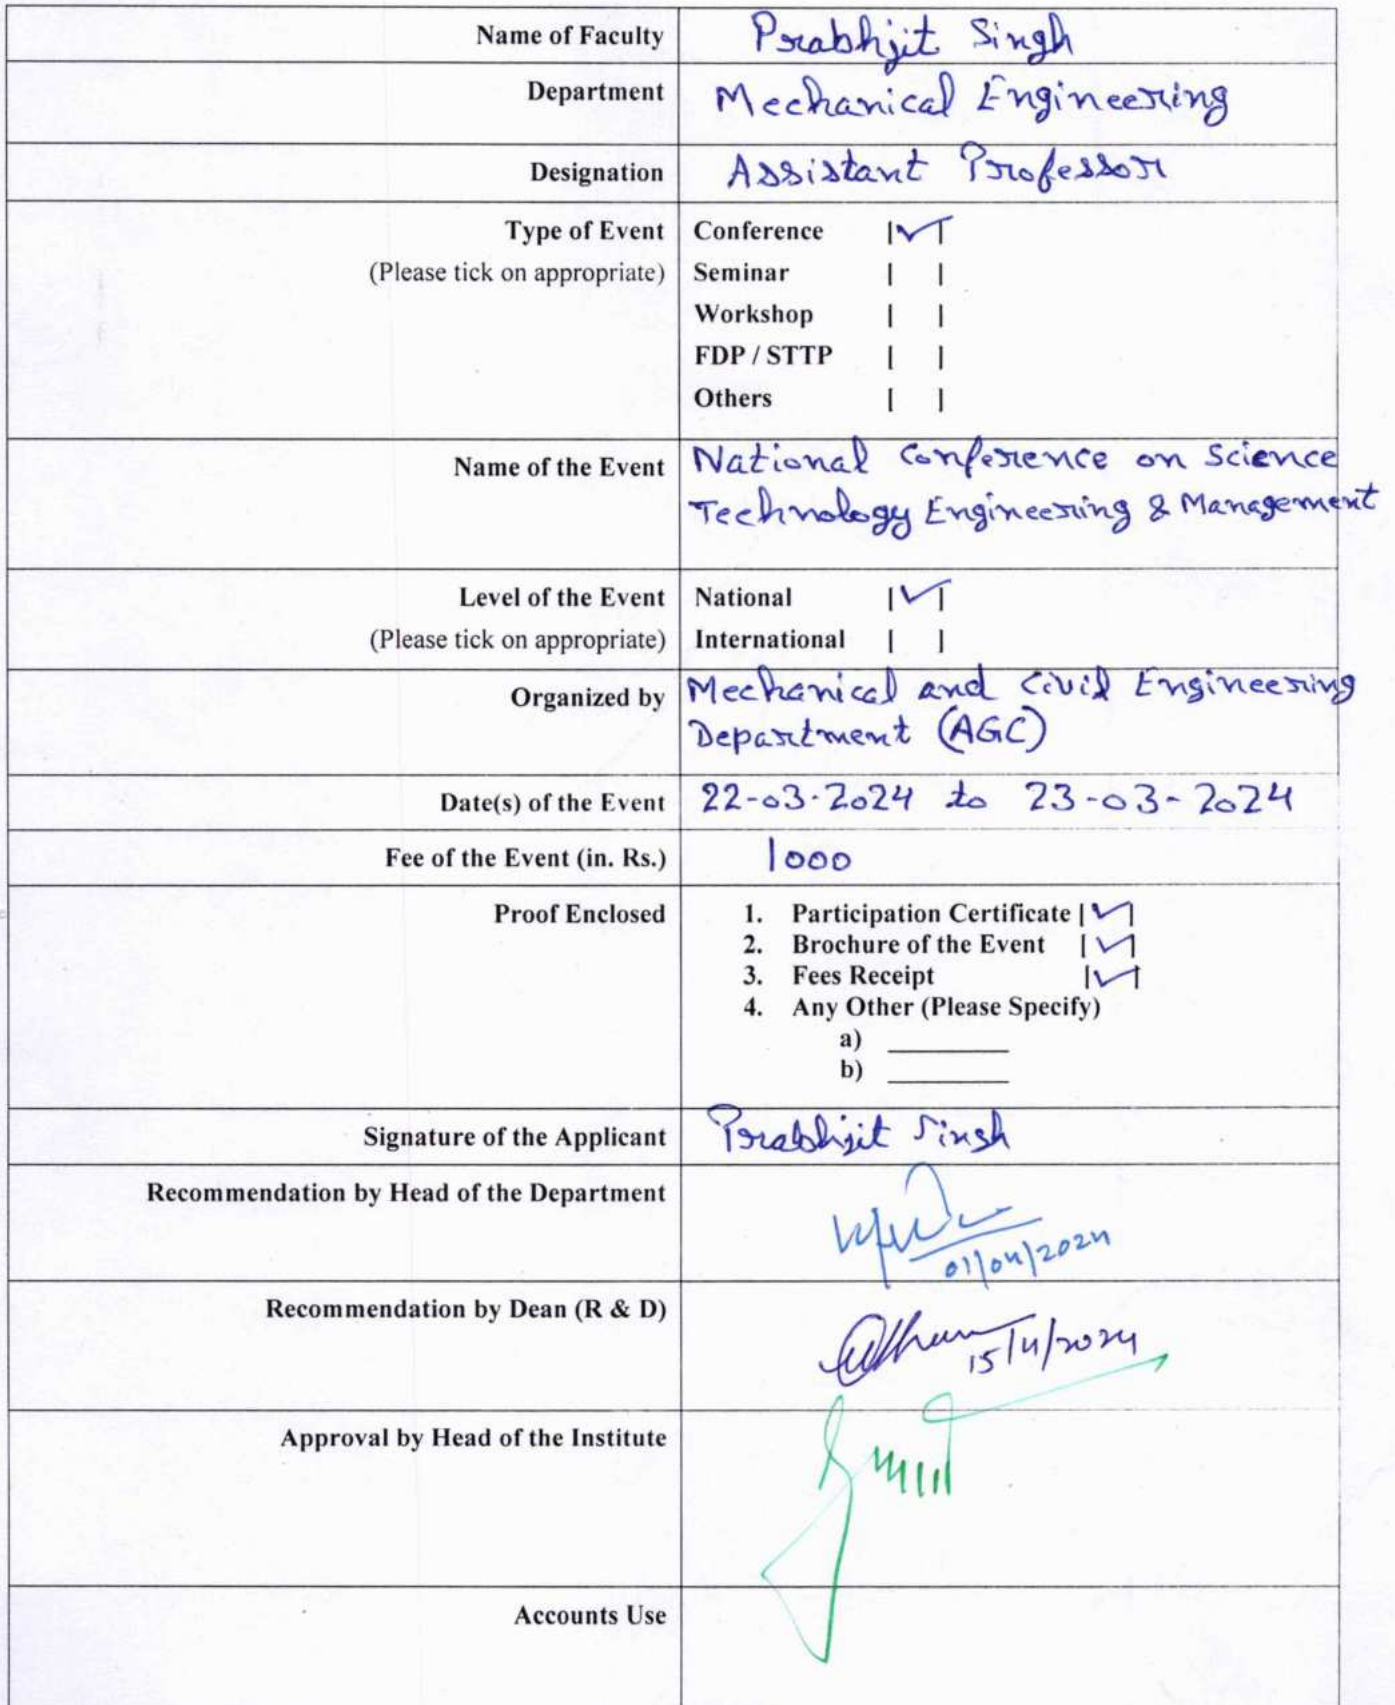 Name of Faculty Prabhjit Singh
Department Mechanical Engineering
Designation Assistant Professor
Type of Event Conference |✓|
(Please tick on appropriate) Seminar | |
Workshop | |
FDP / STTP | |
Others | |
Name of the Event National Conference on Science
Technology Engineering & Management
Level of the Event National |✓|
(Please tick on appropriate) International | |
Organized by Mechanical and Civil Engineering
Department (AGC)
Date(s) of the Event 22-03-2024 to 23-03-2024
Fee of the Event (in. Rs.) 1000
Proof Enclosed 1. Participation Certificate |✓|
2. Brochure of the Event |✓|
3. Fees Receipt |✓|
4. Any Other (Please Specify)
a) ________
b) ________
Signature of the Applicant Prabhjit Singh
Recommendation by Head of the Department
01/04/2024
Recommendation by Dean (R & D)
15/4/2024
Approval by Head of the Institute
Accounts Use